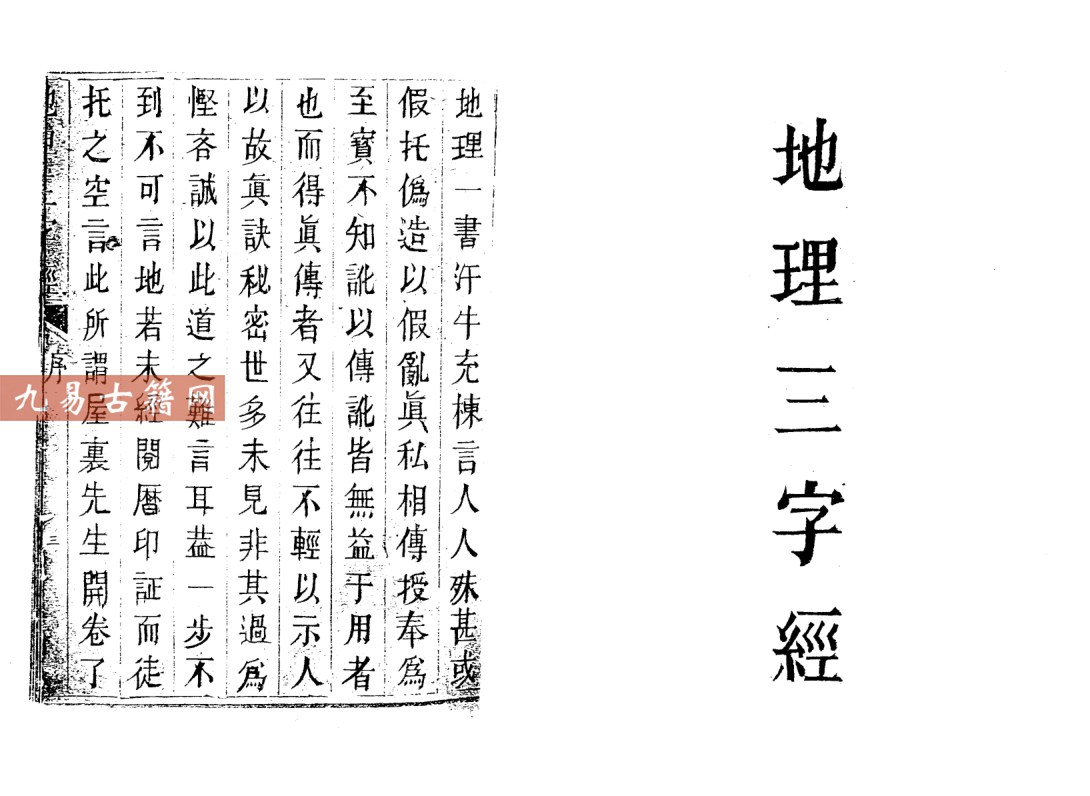 地理三字經
地理一書汗牛充棟言人人殊甚或
假托僞造以假亂眞私相傳授奉爲
至寶不知訛以傳訛皆無益于用者
也而得眞傳者又往往不輕以示人
以故眞訣秘密世多未見非其過爲
慳吝誠以此道之難言耳葢一步不
到不可言地若未經閱曆印証而徒
托之空言此所謂屋裏先生開卷了
序
三
九易古籍网